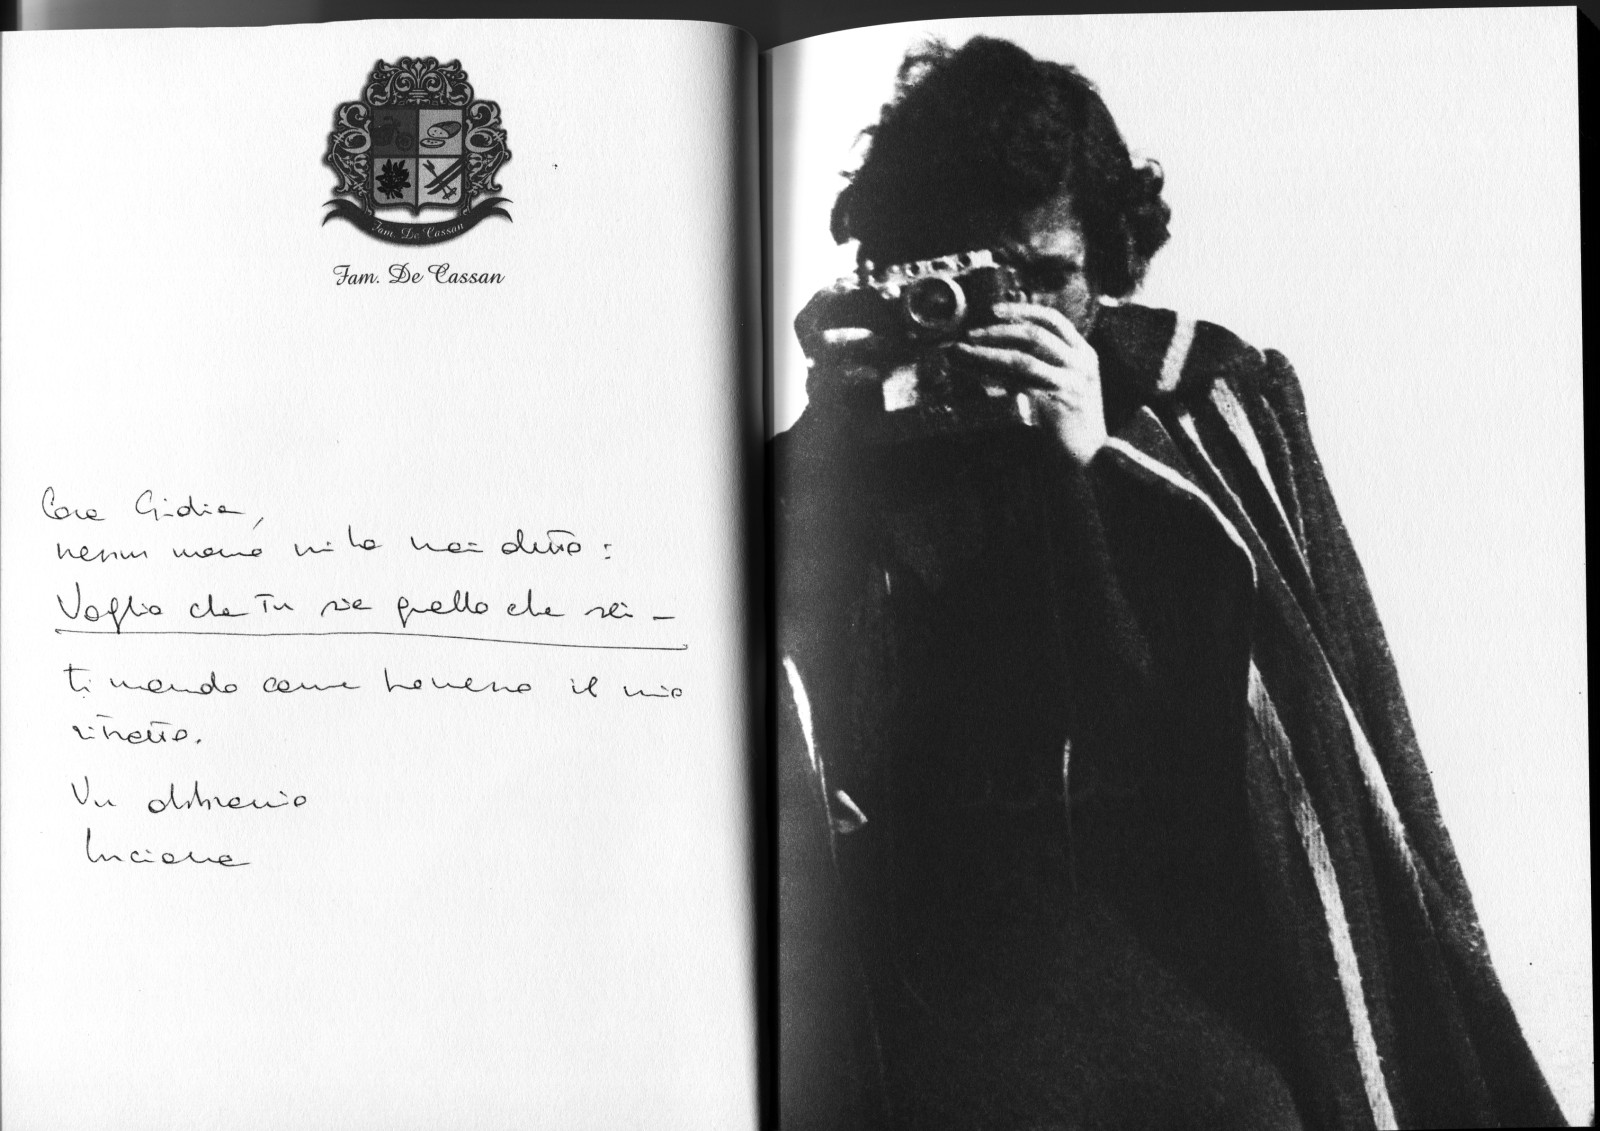 Fam. De Cassan
Fam. De Cassan
Cara Gidia,
nessun uomo mi ha mai detto:
Voglio che Tu sia quello che sei –
ti mando come
il mio
ritratto.
Un abbraccio
Luciana